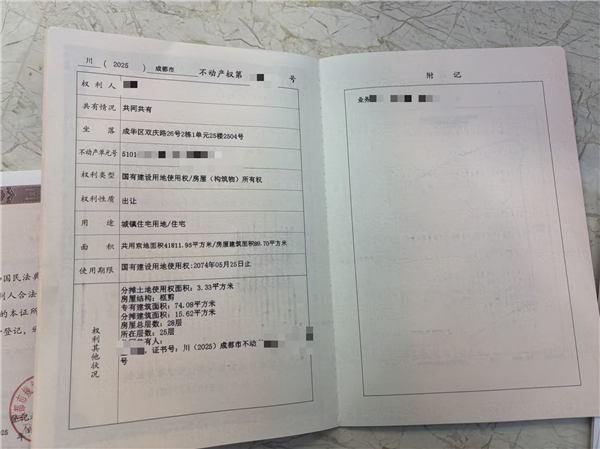 川 ( 2025 ) 成都市 不动产权第 号
权利人
共有情况 共同共有
坐落 成华区双庆路26号2栋1单元25楼2504号
不动产单元号 5101
权利类型 国有建设用地使用权/房屋(构筑物)所有权
权利性质 出让
用途 城镇住宅用地/住宅
面积 共用宗地面积41811.95平方米/房屋建筑面积89.70平方米
使用期限 国有建设用地使用权:2074年05月25日止
权利其他状况
分摊土地使用权面积: 3.33平方米
房屋结构: 框剪
专有建筑面积: 74.08平方米
分摊建筑面积: 15.62平方米
房屋总层数: 28层
所在层数: 25层
有人:
, 证书号: 川(2025)成都市不动
号
附记
业务
国民法典
利人合法
的本证所
登记
年